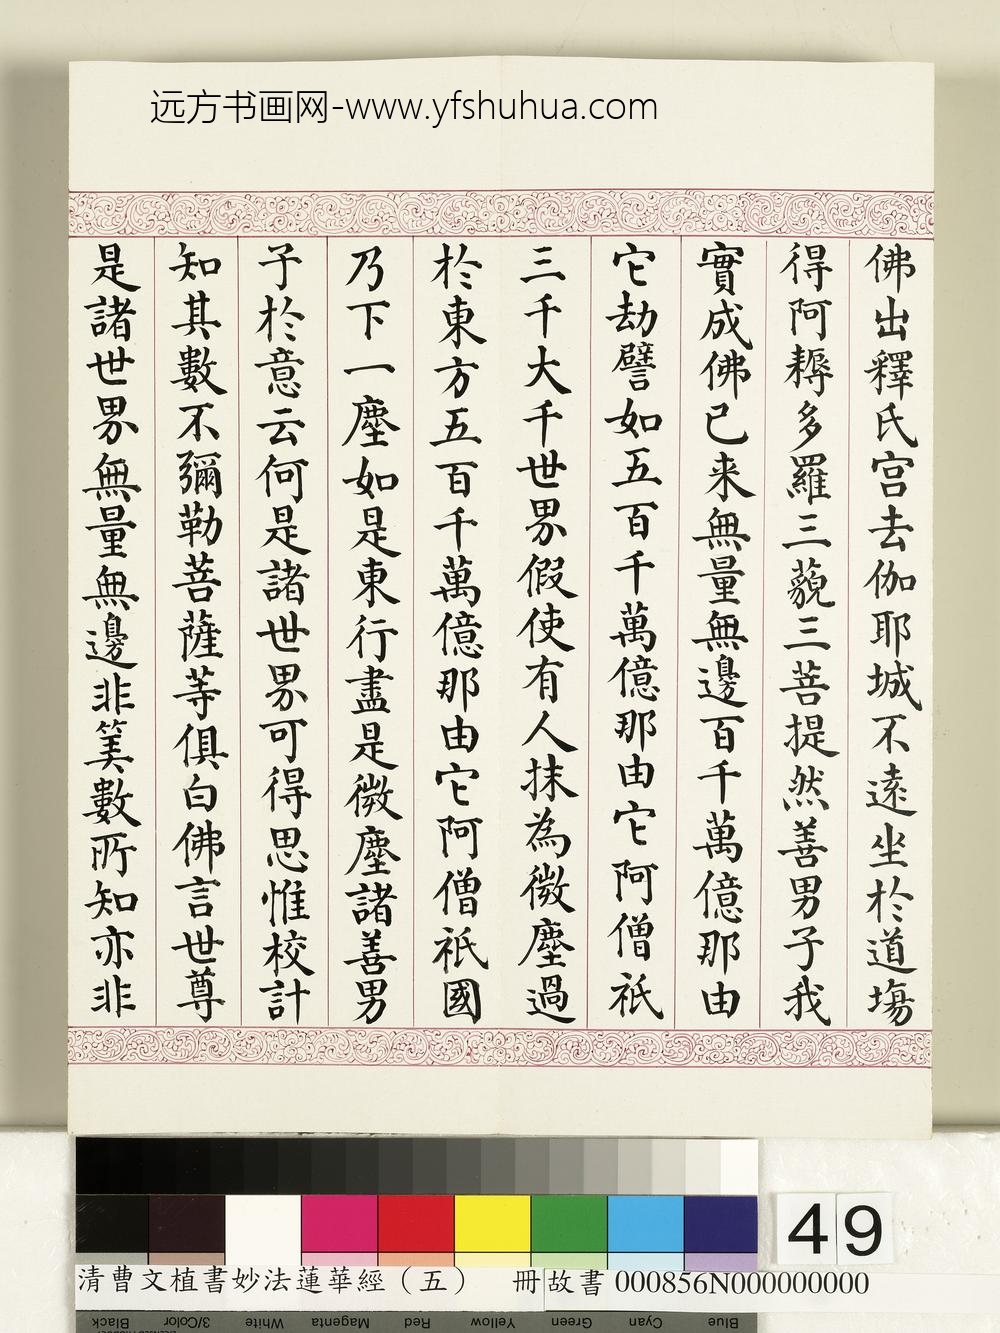 远方书画网-www.yfshuhua.com
佛出釋氏宮去伽耶城不遠坐於道場
得阿耨多羅三藐三菩提然善男子我
實成佛已来無量無邊百千萬億那由
它劫譬如五百千萬億那由它阿僧祇
三千大千世界假使有人抹為微塵過
於東方五百千萬億那由它阿僧祇國
乃下一塵如是東行盡是微塵諸善男
子於意云何是諸世界可得思惟校計
知其數不彌勒菩薩等俱白佛言世尊
是諸世界無量無邊非筭數所知亦非
49
清曹文植書妙法蓮華經（五） 冊 故書 000856N000000000
Black 3/Color White Magenta Red Yellow Green Cyan Blue